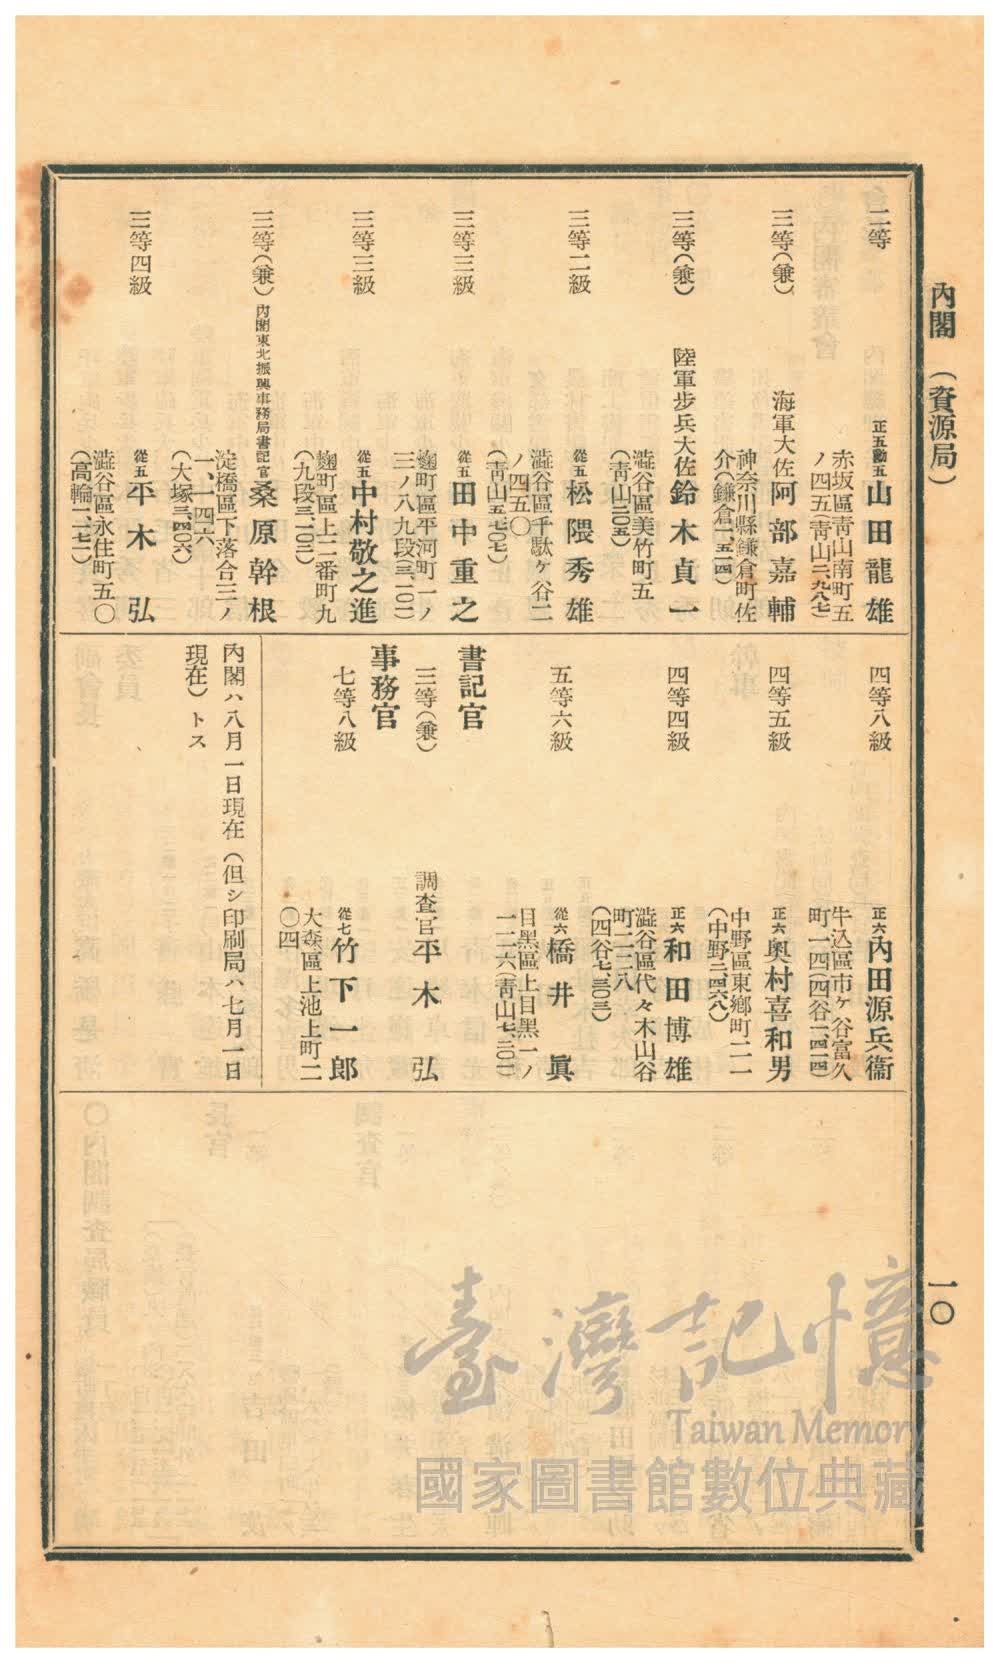 內閣 （資源局）
一〇
二等
正五勳五山田龍雄
赤坂區靑山南町五
ノ四五（靑山二、九八七）
三等（兼）
海軍大佐阿部嘉輔
神奈川縣鎌倉町佐
介（鎌倉一五二四）
三等（兼）
陸軍步兵大佐鈴木貞一
澁谷區美竹町五
（靑山二〇五）
三等二級
從五松隈秀雄
澁谷區千駄ヶ谷二
ノ四五〇
（靑山五、七〇七）
三等三級
從五田中重之
麴町區平河町一ノ
三ノ八九段三、一〇一）
三等三級
從五中村敬之進
麴町區上二番町九
（九段三、一〇三）
三等（兼）
內閣東北振興事務局書記官桑原幹根
淀橋區下落合三ノ
一、一四六
（大塚三、四〇六）
三等四級
從五平木弘
澁谷區永住町五〇
（高輪一、二七一）
四等八級
正六內田源兵衞
牛込區市ヶ谷富久
町一四（四谷一、四一四）
四等五級
正六奧村喜和男
中野區東鄕町二一
（中野二、四六八）
四等四級
正六和田博雄
澁谷區代々木山谷
町一二八
（四谷七、三〇三）
五等六級
從六橋井眞
目黑區上目黑一ノ
一一二六（靑山七、三〇一）
書記官
三等（兼）
調査官平木弘
事務官
七等八級
從七竹下一郎
大森區上池上町二
〇四
內閣ハ八月一日現在（但シ印刷局ハ七月一日
現在）トス
臺灣記憶
Taiwan Memory
國家圖書館數位典藏